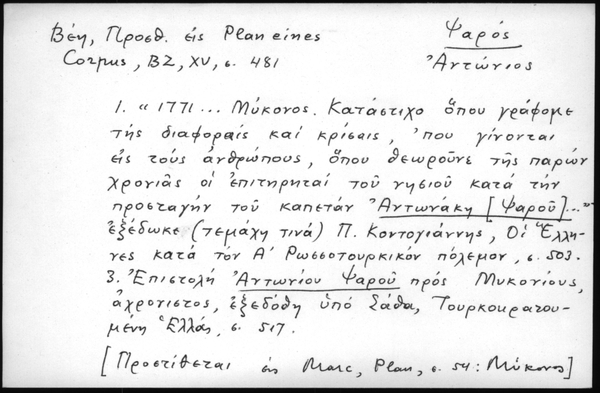 Βέη, Προσθ. εἰς Plan eines
Corpus, BZ, XV, σ. 481
Ψαρός
Ἀντώνιος
1. "1771 ... Μύκονος. Κατάστιχο ὅπου γράφομε
τῆς διαφοραῖς καί κρίσαις, ὁποῦ γίνονται
εἰς τούς ἀνθρώπους, ὅπου θεωροῦνε τῆς παρών
χρονιᾶς οἱ ἐπιτηρηταί τοῦ νησιοῦ κατά τήν
προσταγήν τοῦ καπετάν Ἀντωνάκη [Ψαροῦ]..."
ἐξέδωκε (τεμάχη τινά) Π. Κοντογιάννης, Οἱ Ἕλλη-
νες κατά τόν Α' Ρωσσοτουρκικόν πόλεμον, σ. 503.
3. Ἐπιστολή Ἀντωνίου Ψαροῦ πρός Μυκονίους,
ἀχρονιστος, ἐξεδόθη ὑπό Σάθα, Τουρκοκρατου-
μένη Ἑλλάς, σ. 517.
[Προστίθεται εἰς Marc, Plan, σ. 54: Μύκονος]